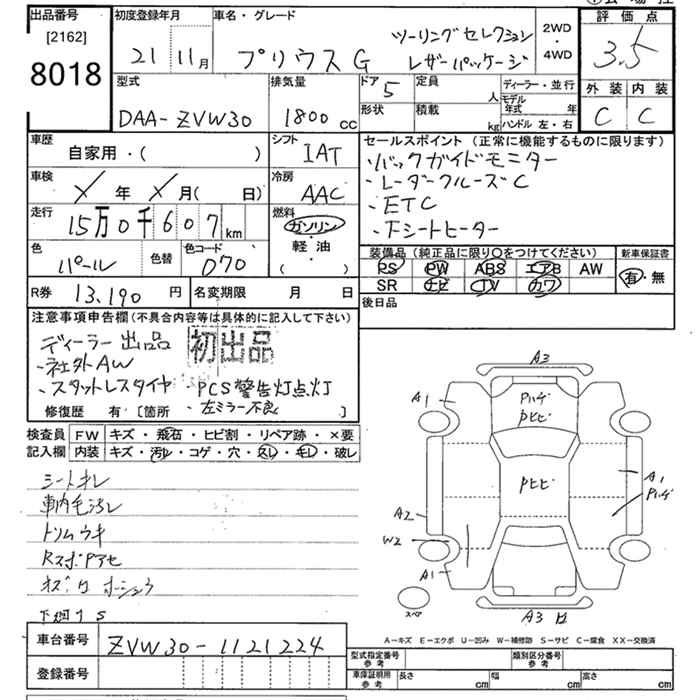 出品番号
[2162]
8018
初度登録年月
21 11月
車名・グレード
プリウス G ツーリングセレクション
レザーパッケージ
2WD
・
4WD
評価点
3.5
外装 内装
C C
型式
DAA-ZVW30
排気量
1800 cc
ドア 5
形状
定員
人
積載
kg
ディーラー・並行
モデル
年式 年
ハンドル 左・右
車歴
自家用・( )
シフト
IAT
車検
年 月( 日)
冷房
AAC
走行
15万0千607km
燃料
ガソリン
・
軽油
・
( )
色
パール
色替
色コード
070
R券 13,190円
名変期限 月 日
セールスポイント(正常に機能するものに限ります)
・バックガイドモニター
・レーダークルーズC
・ETC
・ｆシートヒーター
装備品(純正品に限り○をつけてください)
PS PW ABS エアB AW
SR ナビ TV カワ
新車保証書
有・無
後日品
注意事項申告欄(不具合内容等は具体的に記入して下さい)
ディーラー出品 初出品
・社外AW
・スタットレスタイヤ ・PCS警告灯点灯
・左ミラー不良
修復歴 有・[箇所 ]
検査員
記入欄
FW キズ・飛石・ヒビ割・リペア跡・×要
内装 キズ・汚レ・コゲ・穴・スレ・キレ・破レ
シートキレ
車内毛汚レ
トリムウキ
下廻りS
車台番号 ZVW30-1121224
登録番号
A3
A1
Pハゲ
Pヒビ
Pヒビ
A1
Pハゲ
A2
W2
A1
スペア
A3
A－キズ E－エクボ U－凹み W－補修跡 S－サビ C－腐食 XX－交換済
型式指定番号
参考
類別区分番号
参考
車庫証明用
参考
長さ cm 幅 cm 高さ cm